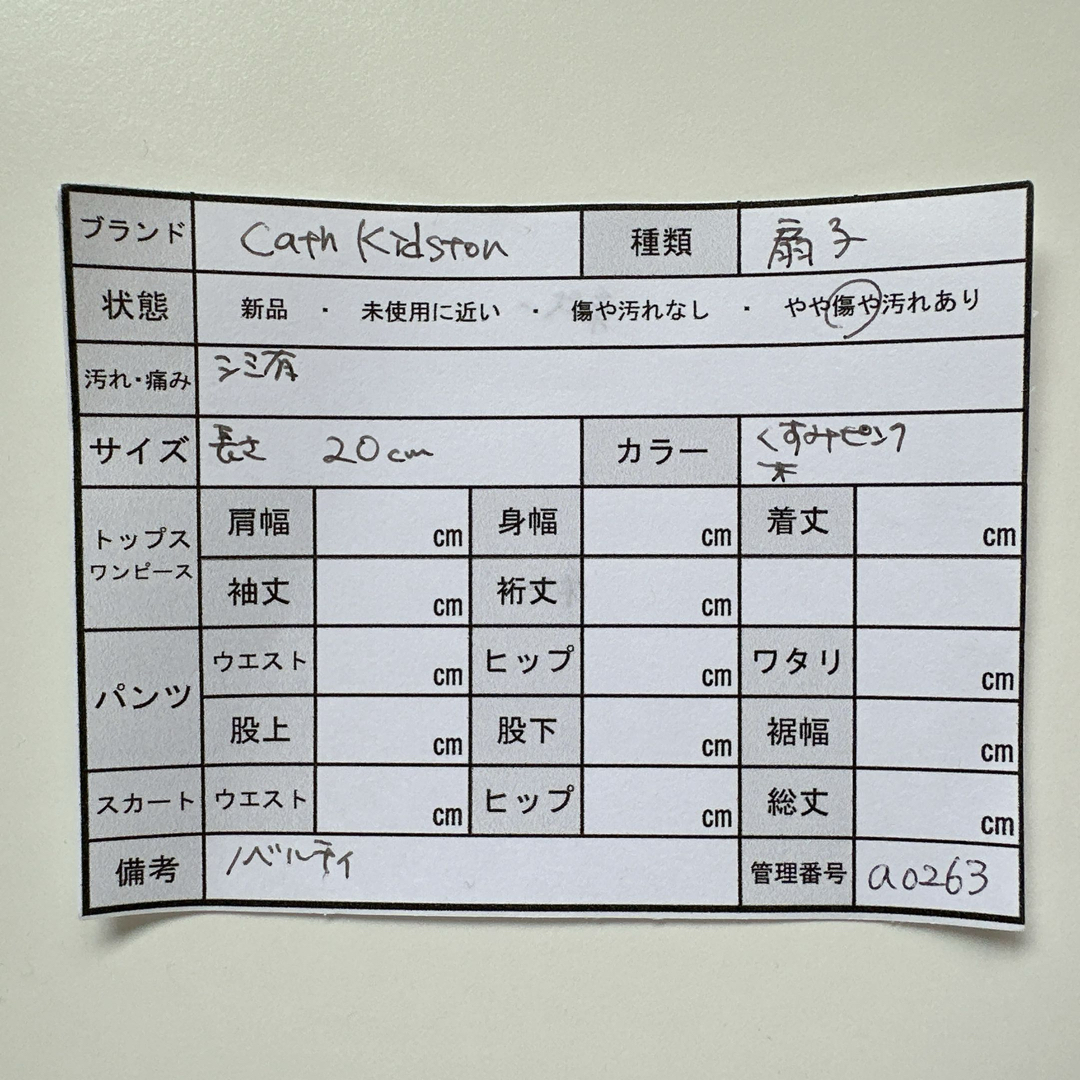 ブランド Cath Kidston 種類 扇子
状態 新品 ・ 未使用に近い ・ 傷や汚れなし ・ やや傷や汚れあり
汚れ・痛み シミ有
サイズ 長さ 20cm カラー くすみピンク
木
トップス
ワンピース
肩幅 cm 身幅 cm 着丈 cm
袖丈 cm 裄丈 cm
パンツ
ウエスト cm ヒップ cm ワタリ cm
股上 cm 股下 cm 裾幅 cm
スカート ウエスト cm ヒップ cm 総丈 cm
備考 ノベルティ 管理番号 a0263